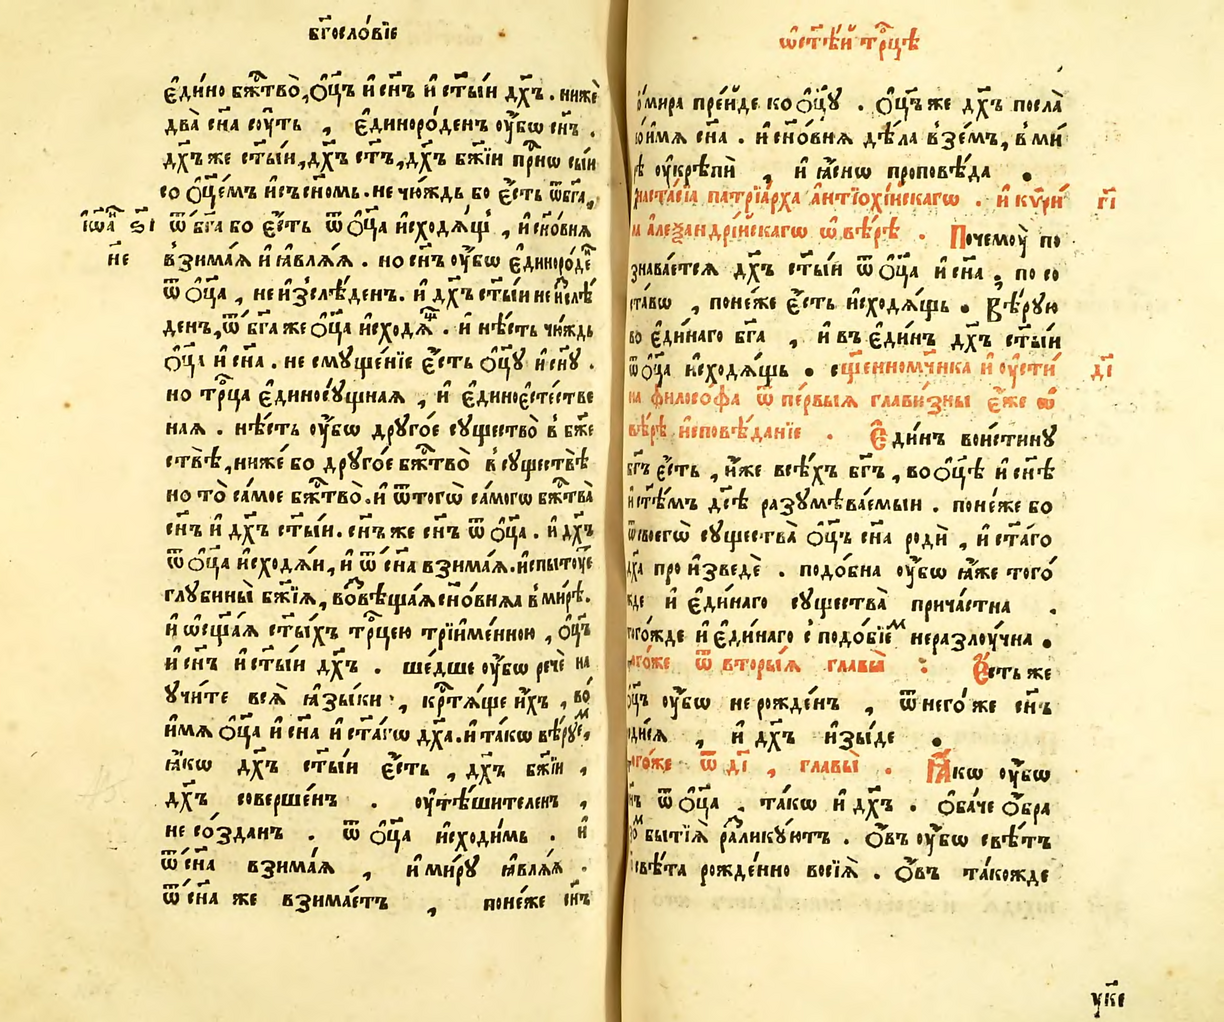 бг҃ословїе
є҆ди́но бж҃тво̀, ѻ҆ц҃ъ и҆ сн҃ъ и҆ ст҃ы́и дх҃ъ . нижѐ
два̀ сн҃а соу́ть , є҆диноро́денъ ᲂу҆́бѡ сн҃ъ .
дх҃ъ же ст҃ы́и, дх҃ъ ст҃ъ, дх҃ъ бж҃їи при́сѡ сы́и
со ѻ҆ц҃е́мъ и҆ съ сн҃омь . не чю́ждь бо є҆́сть ѿ бг҃а,
і҆ѡа́н ѕ҃і ѿ бг҃а бо є҆́сть ѿ ѻ҆ц҃а и҆сходѧ́щі , и҆ сн҃о́внѧ
н҃е взима́ѧ и҆ ꙗ҆влѧ́ѧ . но сн҃ъ ᲂу҆́бѡ є҆диноро́де
ѿ ѻ҆ц҃а , не и҆зслѣ́денъ . и҆ дх҃ъ ст҃ы́и не и҆слѣ́
денъ, ѿ бг҃а же ѻ҆ц҃а и҆сходѧ́ . и҆ нѣ́сть чю́ждь
ѻ҆ц҃а и҆ сн҃а . не смуще́нїе є҆́сть ѻ҆ц҃у и҆ сн҃у .
но тр҃ца є҆диносу́щнаѧ , и҆ є҆диноє҆сте́стве
наѧ . нѣ́сть ᲂу҆́бѡ друго́е существо̀ в бж҃е
ствѣ̀, ниже бо друго́е бж҃тво̀ в существѣ̀
но то̀ само́е бж҃тво̀ . и҆ ѿ тогѡ̀ самогѡ бж҃тва̀
сн҃ъ и҆ дх҃ъ ст҃ы́и . сн҃ъ же сн҃ъ ѿ ѻ҆ц҃а . и҆ дх҃ъ
ѿ ѻ҆ц҃а и҆сходѧ́и, и҆ ѿ сн҃а взима́ѧ . и҆спыту́е
глубины̀ бж҃їѧ, во́звѣща́ѧ сн҃о́внѧѧ в ми́рѣ .
и҆ ѡ҆сщ҃а́ѧ ст҃ы́хъ тр҃цею трїиме́нною , ѻ҆ц҃ъ
и҆ сн҃ъ и҆ ст҃ы́и дх҃ъ . ше́дше ᲂу҆́бѡ речѐ на
учи́те всѧ̀ ꙗ҆зы́ки , кр҃тѧ́ще и҆́хъ , во́
и҆́мѧ ѻ҆ц҃а и҆ сн҃а и҆ ст҃а́гѡ дх҃а . и҆ та́кѡ вѣ́руем,
ꙗ҆́кѡ дх҃ъ ст҃ы́и є҆́сть , дх҃ъ бж҃їи ,
дх҃ъ соверше́нъ . ᲂу҆тѣ́шителенъ ,
не со́зданъ . ѿ ѻ҆ц҃а и҆сходи́мь . и҆
ѿ сн҃а взима́ѧ , и҆ ми́ру ꙗ҆влѧ́ѧ .
ѿ сн҃а же взима́етъ , поне́же сн҃ъ
ѡ҆ ст҃ѣ́й тр҃цѣ
мира пре́йде ко ѻ҆ц҃у . ѻ҆ц҃ъ же дх҃ъ посла̀
и҆́мѧ сн҃а . и҆ сн҃о́внѧ дѣ́ла взе́мъ, в ми́
рѣ ᲂу҆крѣпѝ , и҆ ꙗ҆́снѡ проповѣ́да .
настасїа патрїа́рха а҆нтїохі́искагѡ . и҆ кѵри́ г҃і
ла а҆леѯандрі́искагѡ ѡ҆ вѣ́рѣ . Почему̀ по
знава́етсѧ дх҃ъ ст҃ы́и ѿ ѻ҆ц҃а и҆ сн҃а ; по со
ста́вѡ , поне́же є҆́сть и҆сходѧ́щь . Вѣ́рую
во є҆ди́наго бг҃а , и҆ въ є҆ди́нъ дх҃ъ ст҃ы́и
ѿ ѻ҆ц҃а и҆сходѧ́щь . сщ҃енномч҃ника и҆ ᲂу҆сти́ д҃і
на філосо́фа ѿ пе́рвыѧ главизны̀ є҆́же ѡ҆
вѣ́рѣ и҆сповѣ́данїе . Є҆ди́нъ вои́стину
бг҃ъ є҆́сть , и҆́же всѣ́хъ бг҃ъ , во ѻ҆ц҃ѣ и҆ сн҃ѣ
и҆ ст҃ѣ́мъ дс҃ѣ разумѣва́емыи . поне́же бо
ѿ своегѡ̀ существа̀ ѻ҆ц҃ъ сн҃а родѝ , и҆ ст҃а́го
дх҃а произведѐ . подо́бна ᲂу҆́бѡ ꙗ҆́же того́
жде и҆ є҆ди́наго существа̀ прича́стна .
того́жде и҆ є҆ди́наго с подо́бїем неразлу́чна .
того́же ѿ вторы́ѧ главы̀ : Є҆́сть же
ѻ҆ц҃ъ ᲂу҆́бѡ не рожде́нъ , ѿ него́ же сн҃ъ
родисѧ , и҆ дх҃ъ и҆зы́де .
того́же ѿ д҃і , главы̀ . Ꙗ҆́кѡ ᲂу҆́бѡ
сн҃ъ ѿ ѻ҆ц҃а , та́кѡ и҆ дх҃ъ . ѻ҆ба́че ѻ҆бра
зом бытїѧ̀ разликую́тъ . ѻ҆́въ ᲂу҆́бѡ свѣ́тъ
свѣ́та рожде́нно возсїѧ̀ . ѻ҆́въ та́кожде